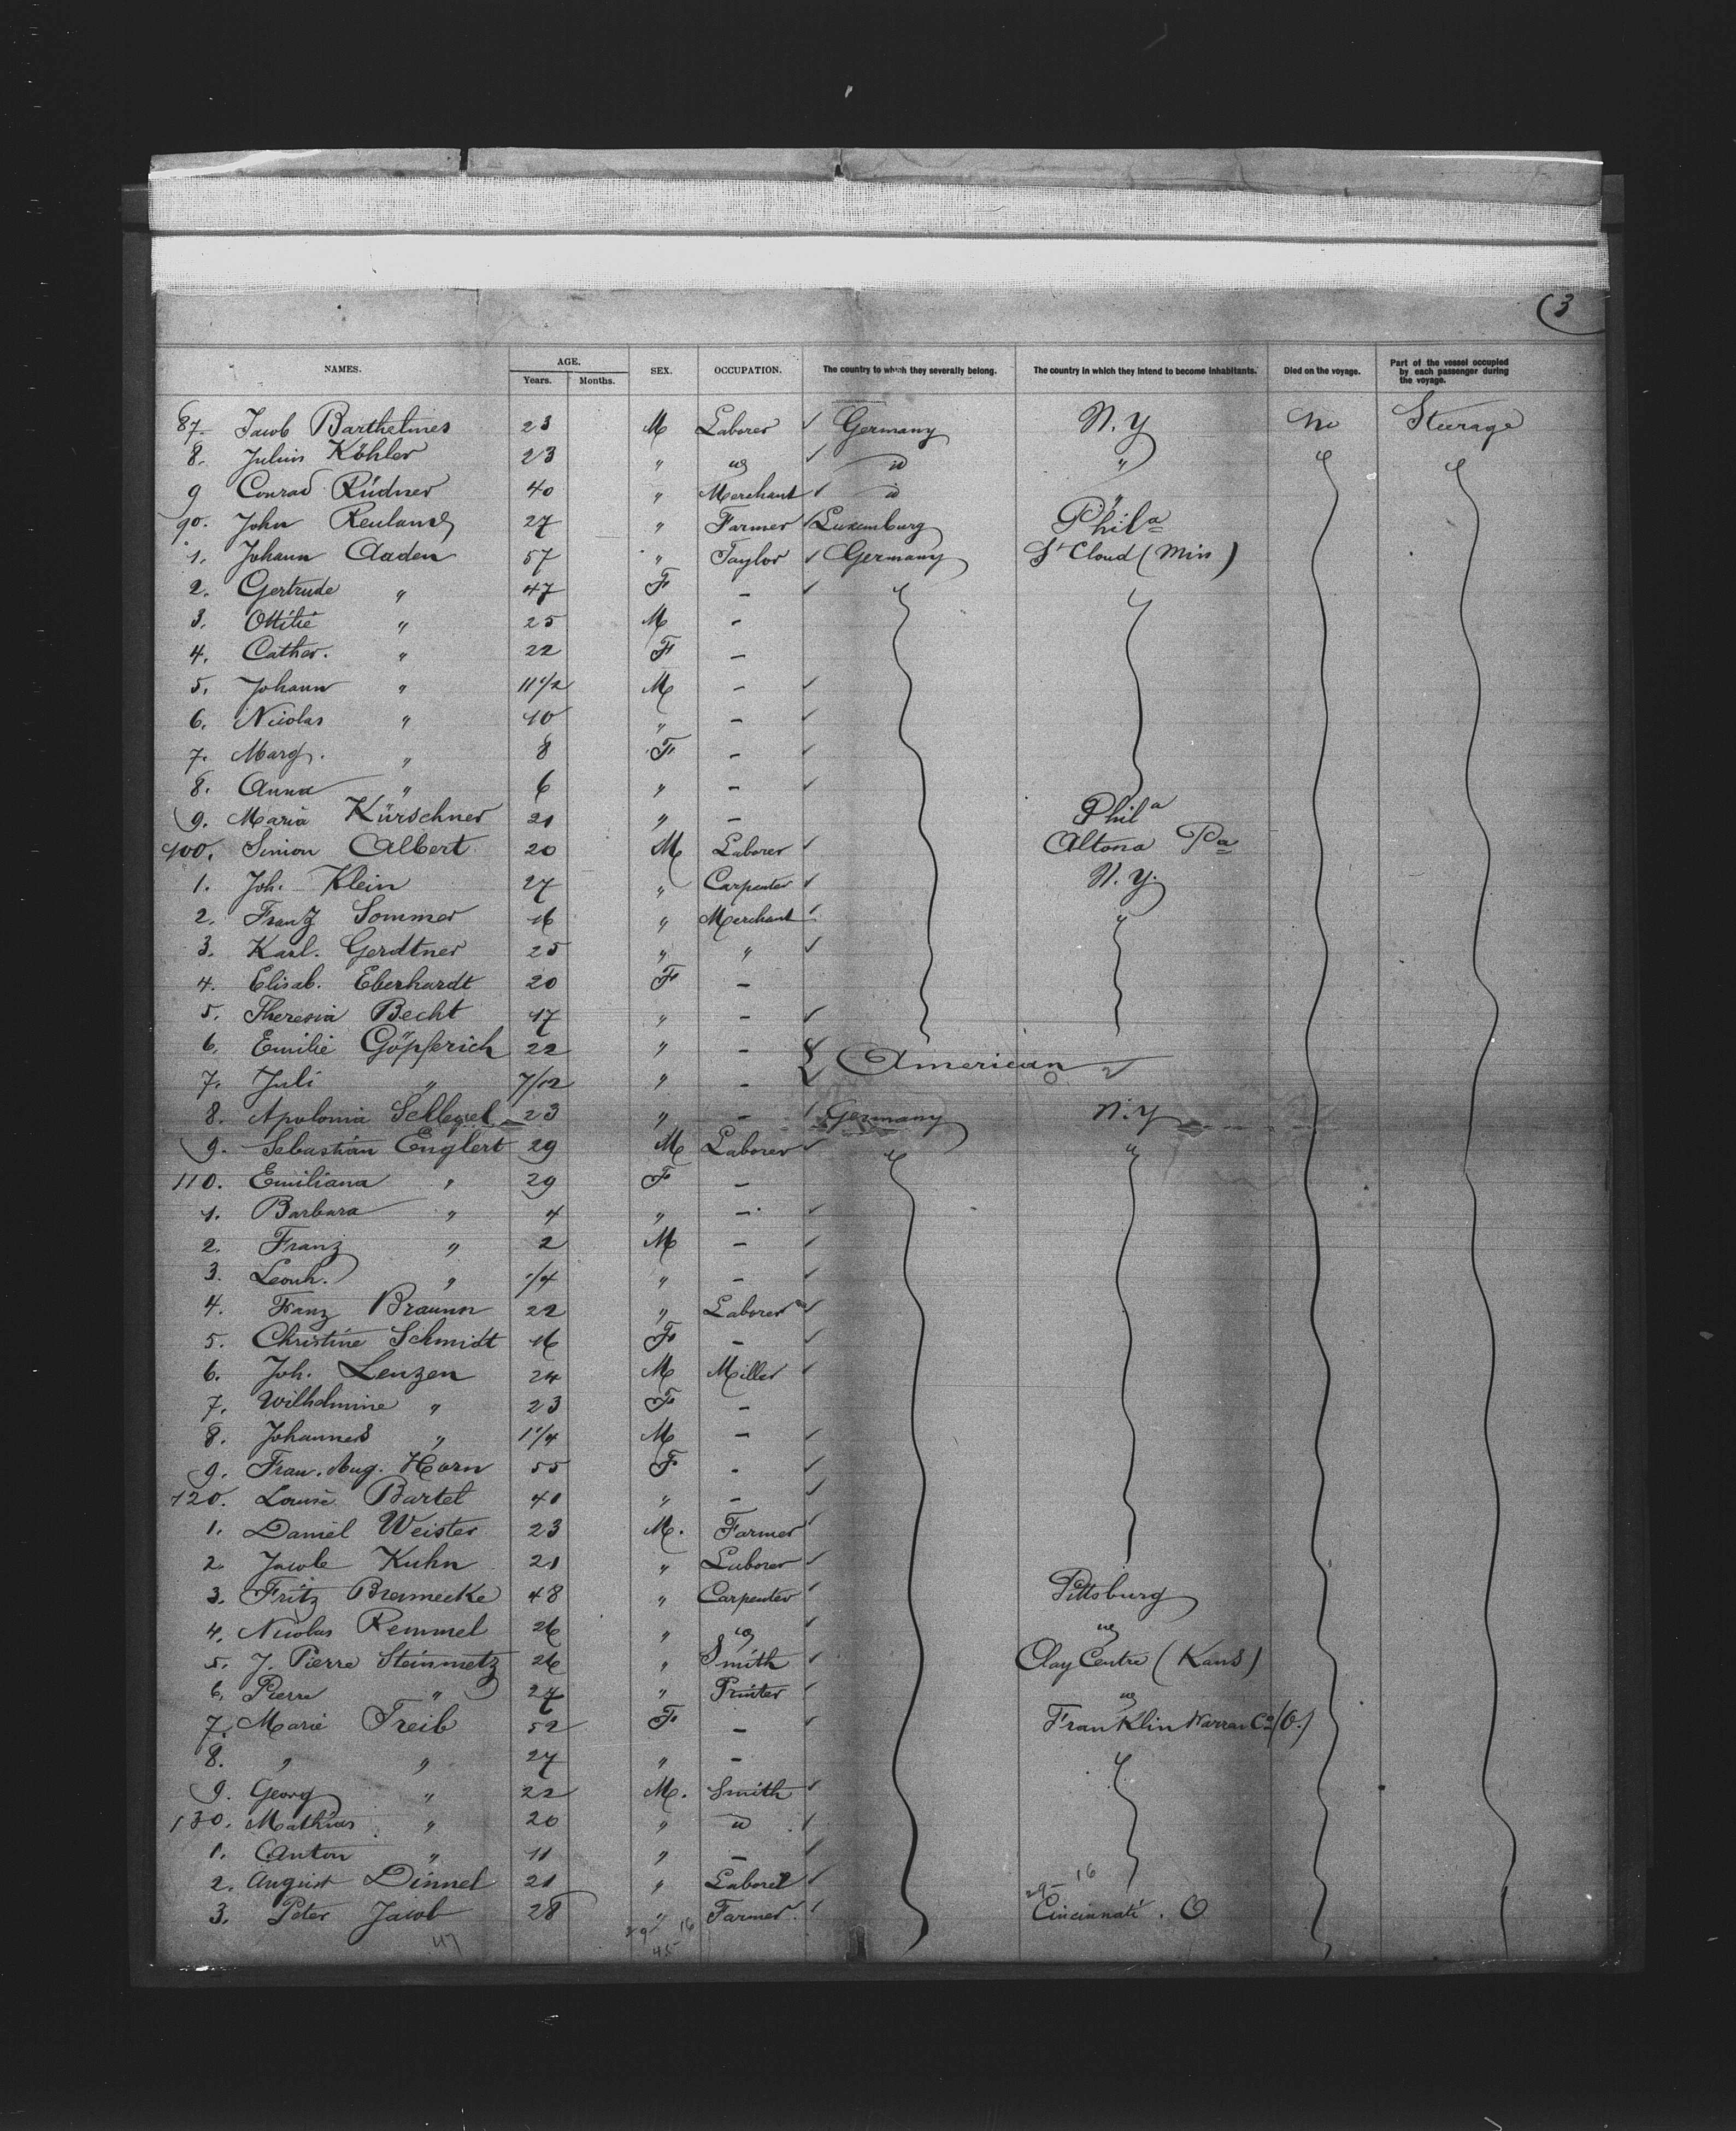 (3
NAMES. AGE. SEX. OCCUPATION. The country to which they severally belong. The country in which they intend to become inhabitants. Died on the voyage. Part of the vessel occupied by each passenger during the voyage.
Years. Months.
87. Jacob Barthelmes 23 M Laborer ✓ Germany N.Y No Steerage
8. Julius Köhler 23 " " ✓ " "
9 Conrad Rüdner 40 " Merchant ✓ " "
90. John Reuland 27 " Farmer ✓ Luxemburg Phila
1. Johann Aaden 57 " Taylor ✓ Germany St Cloud (Min)
2. Gertrude " 47 F – ✓
3. Ottilie " 25 M –
4. Cather. " 22 F –
5. Johann " 11 1/2 M – ✓
6. Nicolas " 10 " – ✓
7. Marg. " 8 F – ✓
8. Anna " 6 " – ✓
9. Maria Kürschner 21 " – Phila
100. Simon Albert 20 M Laborer ✓ Altona Pa
1. Joh. Klein 27 " Carpenter ✓ N.Y.
2. Franz Sommer 16 " Merchant ✓ "
3. Karl. Gerdtner 25 " " ✓
4. Elisab. Eberhardt 20 F –
5. Theresia Becht 17 " – ✓
6. Emilie Göpferich 22 " – ✓ American
7. Juli " 7/12 " – ✓
8. Apolonia Schlegel 23 " – ✓ Germany N.Y
9. Sebastian Englert 29 M Laborer ✓ "
110. Emiliana " 29 F –
1. Barbara " 4 " – ✓
2. Franz " 2 M – ✓
3. Leonh. " 1/4 " – ✓
4. Franz Braunn 22 " Laborer ✓
5. Christine Schmidt 16 F – ✓
6. Joh. Lenzen 24 M Miller ✓
7. Wilhelmine " 23 F –
8. Johannes " 1 1/4 M – ✓
9. Frau. Aug. Horn 55 F - ✓
120. Louise Bartel 40 " – ✓
1. Daniel Weister 23 M. Farmer ✓
2. Jacob Kuhn 21 " Laborer ✓
3. Fritz Bremecke 48 " Carpenter ✓ Pittsburg
4. Nicolas Remmel 26 " " ✓ "
5. J. Pierre Steinmetz 26 " Smith ✓ Clay Centre (Kans)
6. Pierre " 27 " Printer ✓ "
7. Marie Treib 52 F – ✓ Franklin Warran Co (O.)
8. " " 27 " –
9. Georg " 22 M. Smith ✓
130. Mathias " 20 " " ✓
1. Anton " 11 " – ✓
2. August Dinnel 21 " Laborer ✓
29– 16
3. Peter Jacob 28 " Farmer. ✓ Cincinnati. O
47 29 16
45